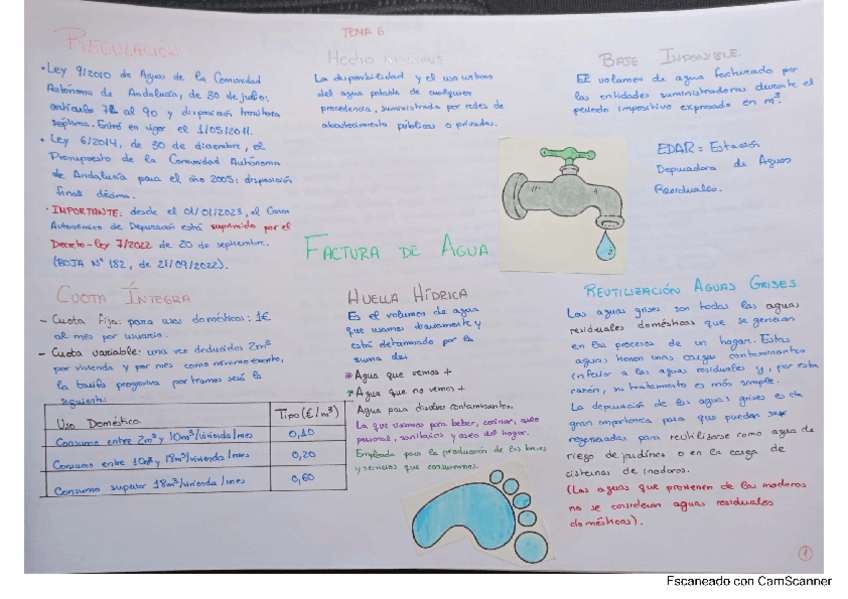 TEMA 6
REGULACIÓN
• Ley 9/2010 de Aguas de la Comunidad
Autónoma de Andalucía, de 30 de julio:
artículo 72 al 90 y disposición transitoria
séptima. Entró en vigor el 1/05/2011.
• Ley 6/2014, de 30 de diciembre, el
Presupuesto de la Comunidad Autónoma
de Andalucía para el año 2005: disposición
final décima.
• IMPORTANTE: desde el 01/01/2023, el Canon
Autonómico de Depuración está suprimido por el
Decreto-ley 7/2022 de 20 de septiembre.
(BOJA Nº 182, de 21/09/2022).
Hecho
La disponibilidad y el uso urbano
del agua potable de cualquier
procedencia, suministrada por redes de
abastecimiento públicas o privadas.
BASE IMPONIBLE
El volumen de agua facturado por
las entidades suministradoras durante el
período impositivo expresado en m³.
EDAR = Estación
Depuradora de Aguas
Residuales.
FACTURA DE AGUA
CUOTA ÍNTEGRA
- Cuota fija: para usos domésticos: 1€
al mes por usuario.
- Cuota variable: una vez deducidos 2m³
por vivienda y por mes como mínimo exento,
la tarifa progresiva por tramos será la
siguiente:
Uso Doméstico Tipo (€/m³)
Consumo entre 2m³ y 10m³/vivienda/mes 0,10
Consumo entre 10m³ y 18m³/vivienda/mes 0,20
Consumo superior 18m³/vivienda/mes 0,60
HUELLA HÍDRICA
Es el volumen de agua
que usamos diariamente y
está determinado por la
suma de:
* Agua que vemos +
* Agua que no vemos +
Agua para disolver contaminantes.
La que usamos para beber, cocinar, aseo
personal, sanitarios y aseo del hogar.
Empleada para la producción de los bienes
y servicios que consumimos.
REUTILIZACIÓN AGUAS GRISES
Las aguas grises son todas las aguas
residuales domésticas que se generan
en los procesos de un hogar. Estas
aguas tienen unas cargas contaminantes
inferior a las aguas residuales y, por esta
razón, su tratamiento es más simple.
La depuración de las aguas grises es de
gran importancia para que puedan ser
regeneradas para reutilizarse como agua de
riego de jardines o en la carga de
cisternas de inodoros.
(Las aguas que provienen de los inodoros
no se consideran aguas residuales
domésticas).
1
Escaneado con CamScanner